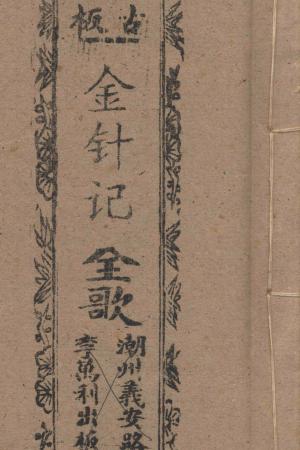 古板
金针记
全歌
潮州義安路
李萬利出板